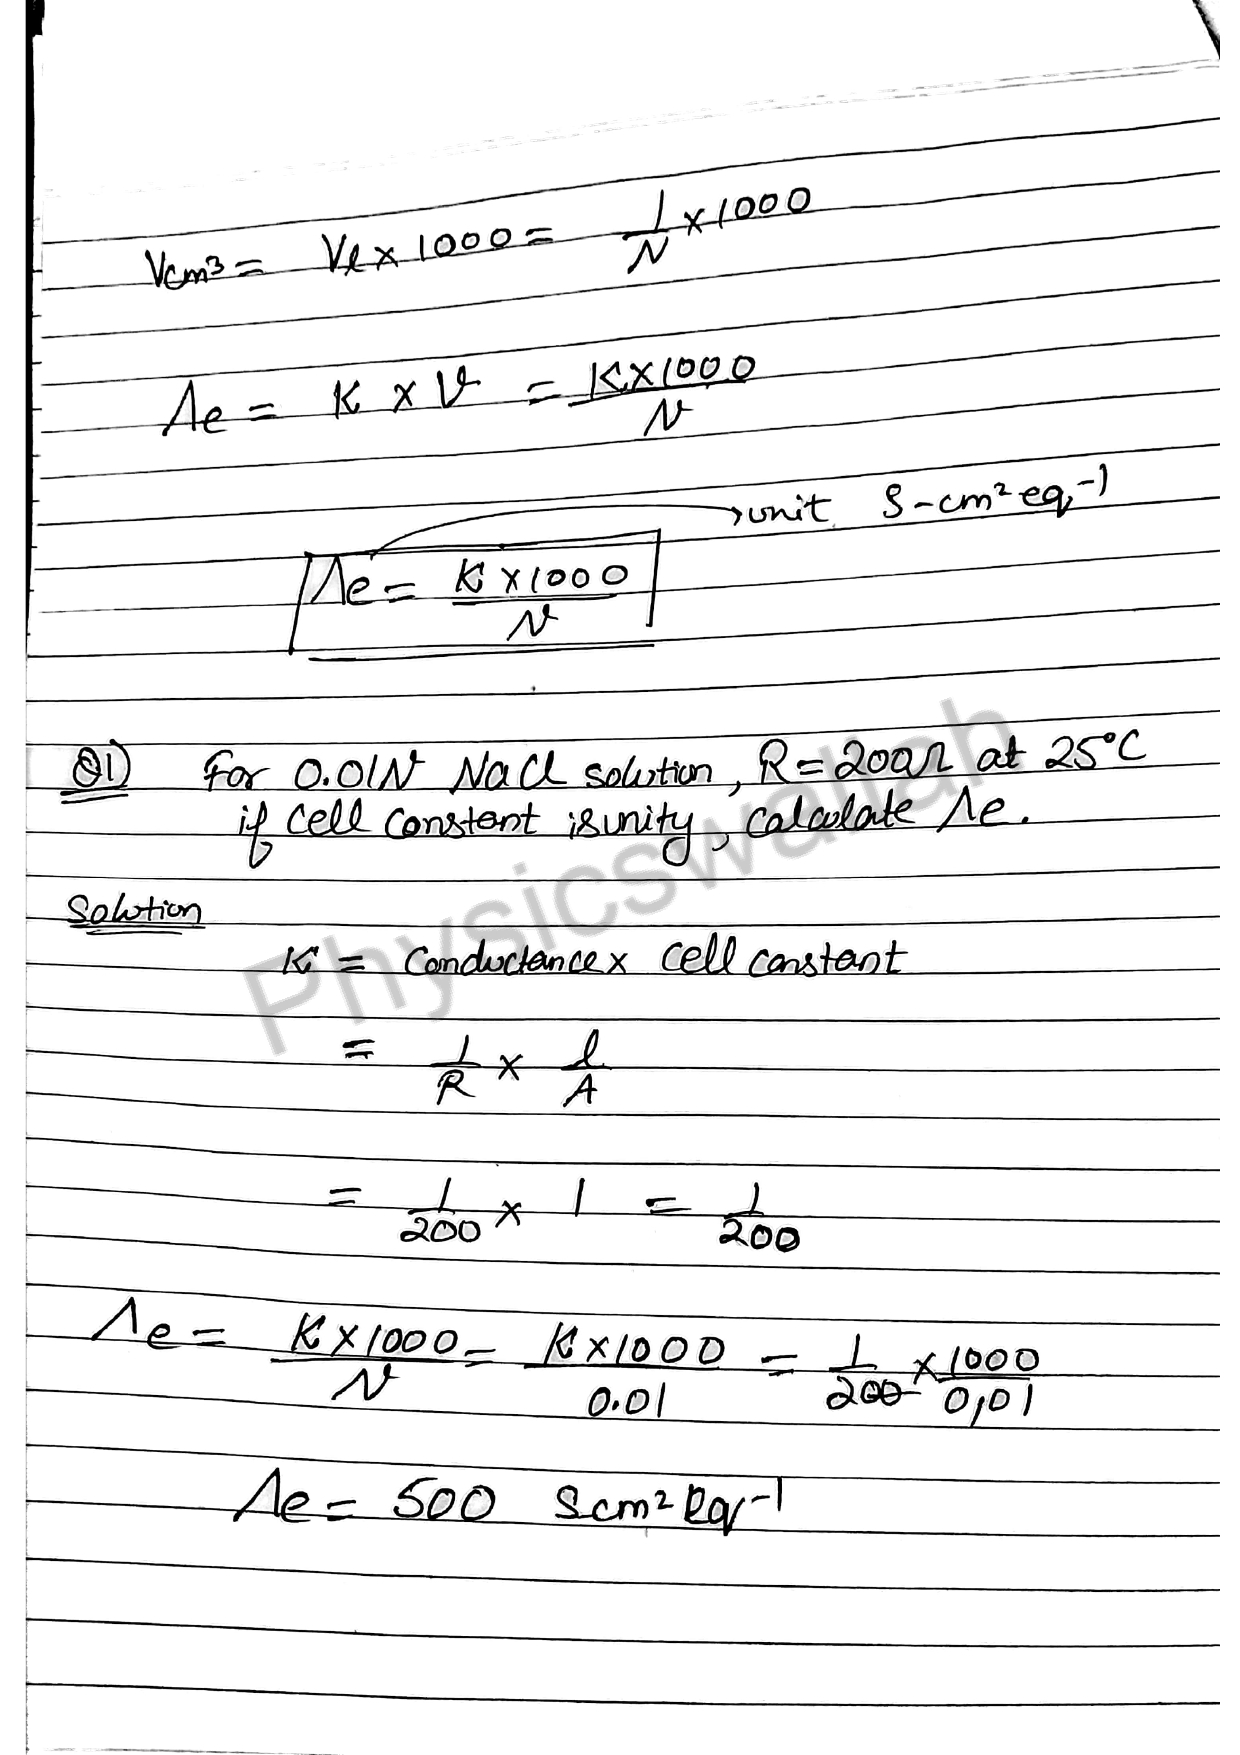 Vcm³ = Vl × 1000 = 1/N × 1000
Λe = K × V = K×1000/N
→ unit S-cm² eq⁻¹
Λe = K × 1000/N
Q1) For 0.01N NaCl solution, R = 200Ω at 25°C
if cell constant is unity, calculate Λe.
Solution
K = Conductance × cell constant
= 1/R × l/A
= 1/200 × 1 = 1/200
Λe = K × 1000/N = K × 1000/0.01 = 1/200 × 1000/0,01
Λe = 500 S cm² Eq⁻¹
Physicswallah